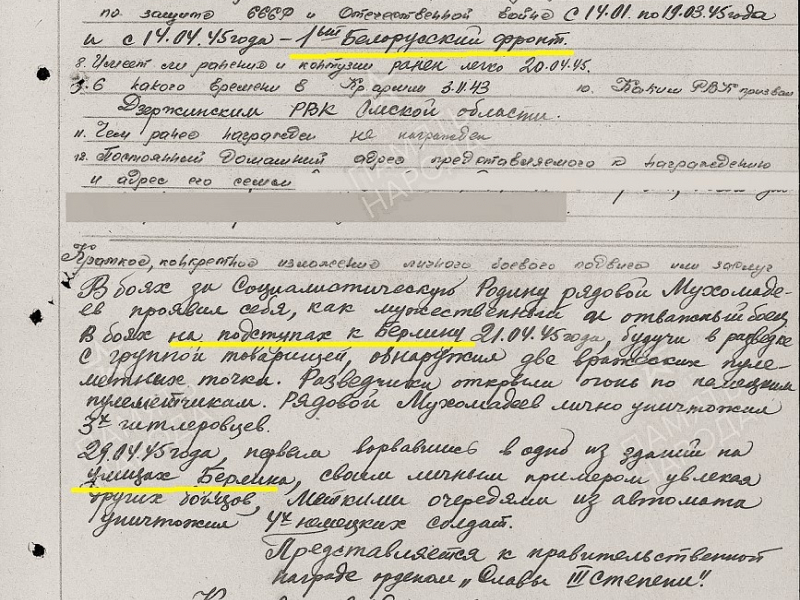 по защите СССР и Отечественной войне С 14.01. по 19.03.45 года
и с 14.04.45 года – 1ый Белорусский фронт.
8. Имеет ли ранения и контузии ранен легко 20.04.45.
9. С какого времени в Кр. армии 3.11.43 10. Каким РВК призван
Дзержинским РВК Омской области.
11. Чем ранее награжден не награжден
12. Постоянный домашний адрес представляемого к награждению
и адрес его семьи
ПАМЯТЬ НАРОДА
Краткое, конкретное изложение личного боевого подвига или заслуг
В боях за Социалистическую Родину рядовой Мухомаде-
ев проявил себя, как мужественный и отважный боец
В боях на подступах к Берлину 21.04.45 года, будучи в разведке
с группой товарищей, обнаружил две вражеских пуле-
метных точки. Разведчики открыли огонь по немецким
пулеметчикам. Рядовой Мухомадеев лично уничтожил
3х гитлеровцев.
29.04.45 года, первым ворвавшись в одно из зданий на
улицах Берлина, своим личным примером увлекая
других бойцов, меткими очередями из автомата
уничтожил 4х немецких солдат.
Представляется к правительственной
награде орденом „Славы III Степени".